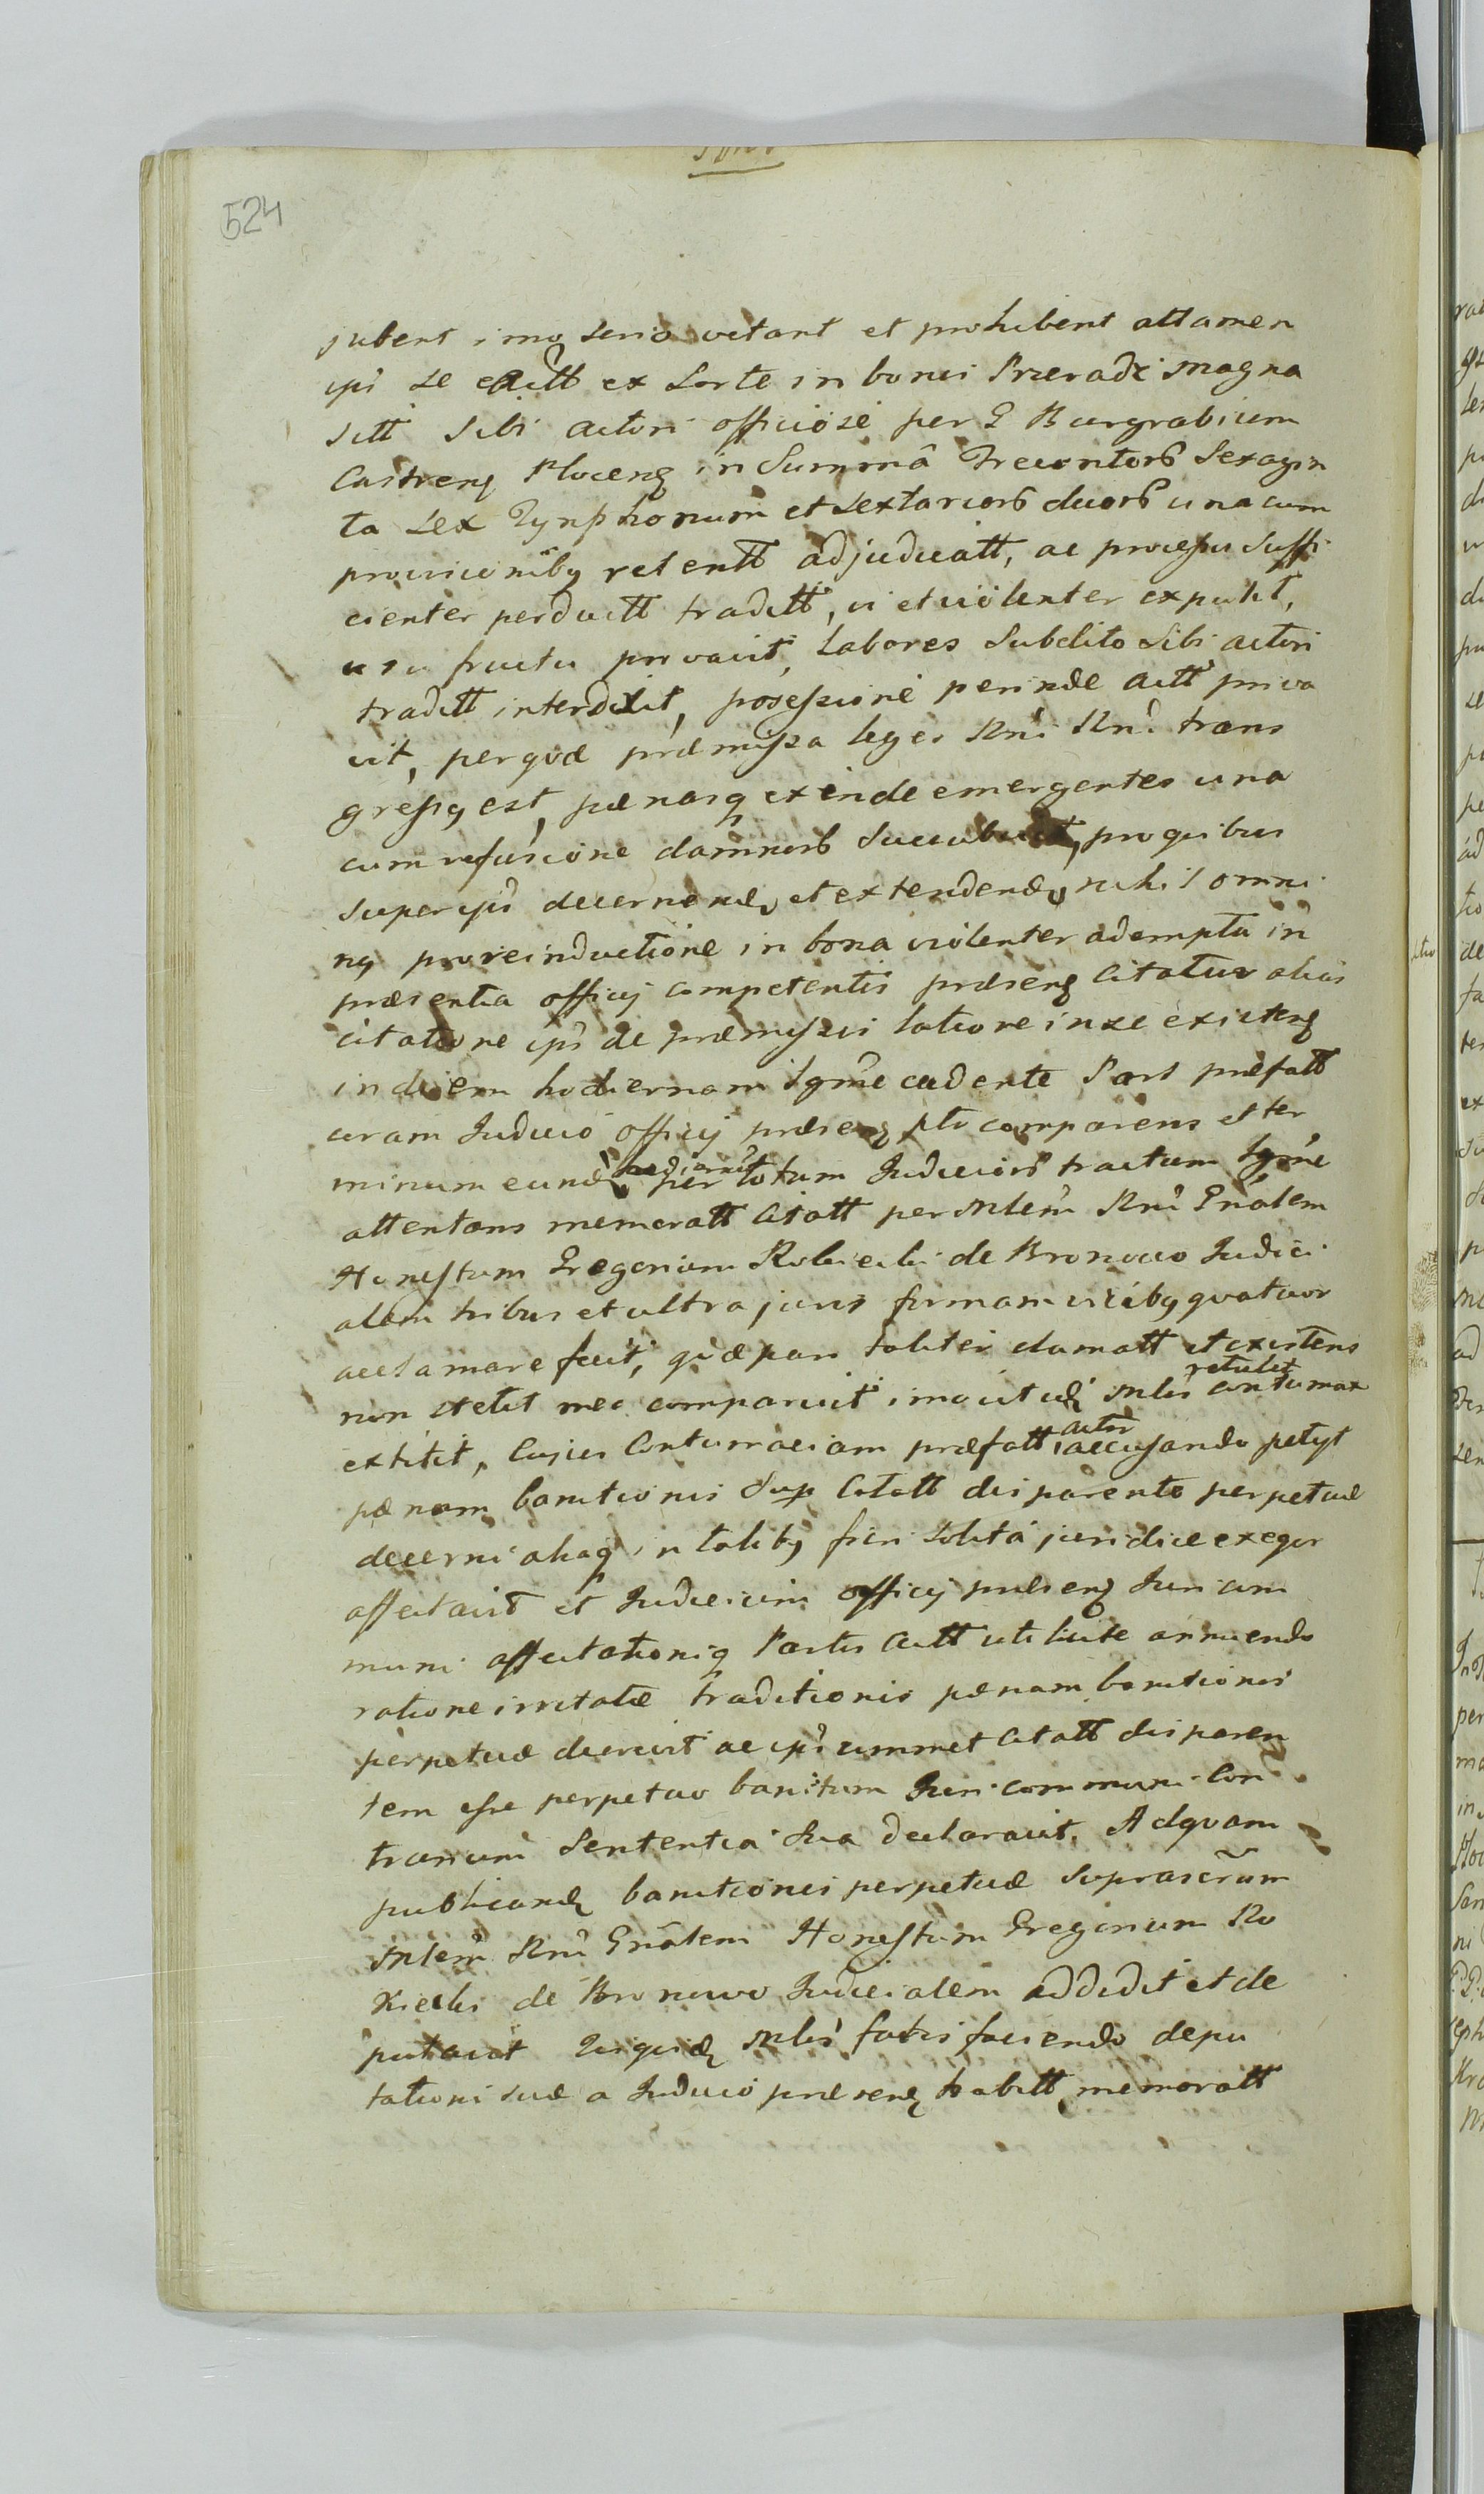 524
jubent imo serio vetant et prohibent attamen
ipse se Actt ex Sorte in bonis Przeradz Magna
sitt Sibi actori officiose per G Burgrabium
Castrenẹ Plocenẹ in Summâ Trecentorꝫ Sexagin
ta Sex Tynphonum et Sextariorꝫ duorꝫ una cum
provisionibꝰ retentt adjudicatt, ac processu Suffi
cienter perductt traditt, vi et violenter expulit,
usu fructu privavit, labores Subdito Sibi actori
traditt interdixit, possessione perinde Actt priva
vit, per quæ præmissa leges Rni Rni trans
gressꝰ est, pænasq exinde emergentes una
cum refusione damnorꝫ Succubuit, pro quibus
Super ipso decernenđ et extendenđ nihil omni
nꝰ pro reinductione in bona violenter adempta in
præsentia officij competentis præsenẹ Citatur alias
citatione ipso de præmissis latiore in se existenẹ
in diem hodiernam Lgme cadente Pars præfatt
coram Judicio officij præsenẹ ptr comparens et ter
minum eundem per totum Judiciorꝫ tractum Lgme
attentans memoratt Citatt per Mlem Rni Gnalem
Honestum Gregorium Rokicki de Bronowo Judici
alem tribus et ultra juris formam vicibꝰ quatuor
acclamare fecit, qui æpars taliter clamatt et existens
retulit
non stetit nec comparuit imo ut idẹ Mlis contumax
actor
extitit, Cujus Contumaciam præfatt accusando petyt
pænam banitionis Sup Citatt disparente perpetuæ
decerni aliaq in talibꝰ fieri solita juridice exequi
affectavit et Judicium officij præsenẹ Juri com
muni affectationiq Partis Actt uti licite annuendo
ratione irritatæ traditionis pænam banitionis
perpetuæ decrevit ac ipsummet Citatt disparen
tem esse perpetuo banitum Juri communi con
trarium Sententia sua declaravit. Ad quam
publicanđ banitionis perpetuæ Suprascrum
Mlem Rni Gnalem Honestum Gregorium Ro
kicki de Bronowo Judicialem addidit et de
putavit Qui quidẹ Mlis satis faciendo depu
tationi suæ a Judicio præsenẹ habitt memoratt